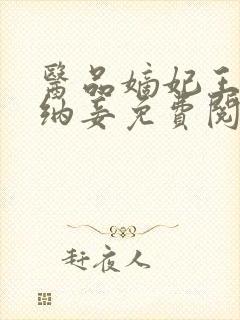 醫品嫡妃王
納妾免費閱
赶夜人